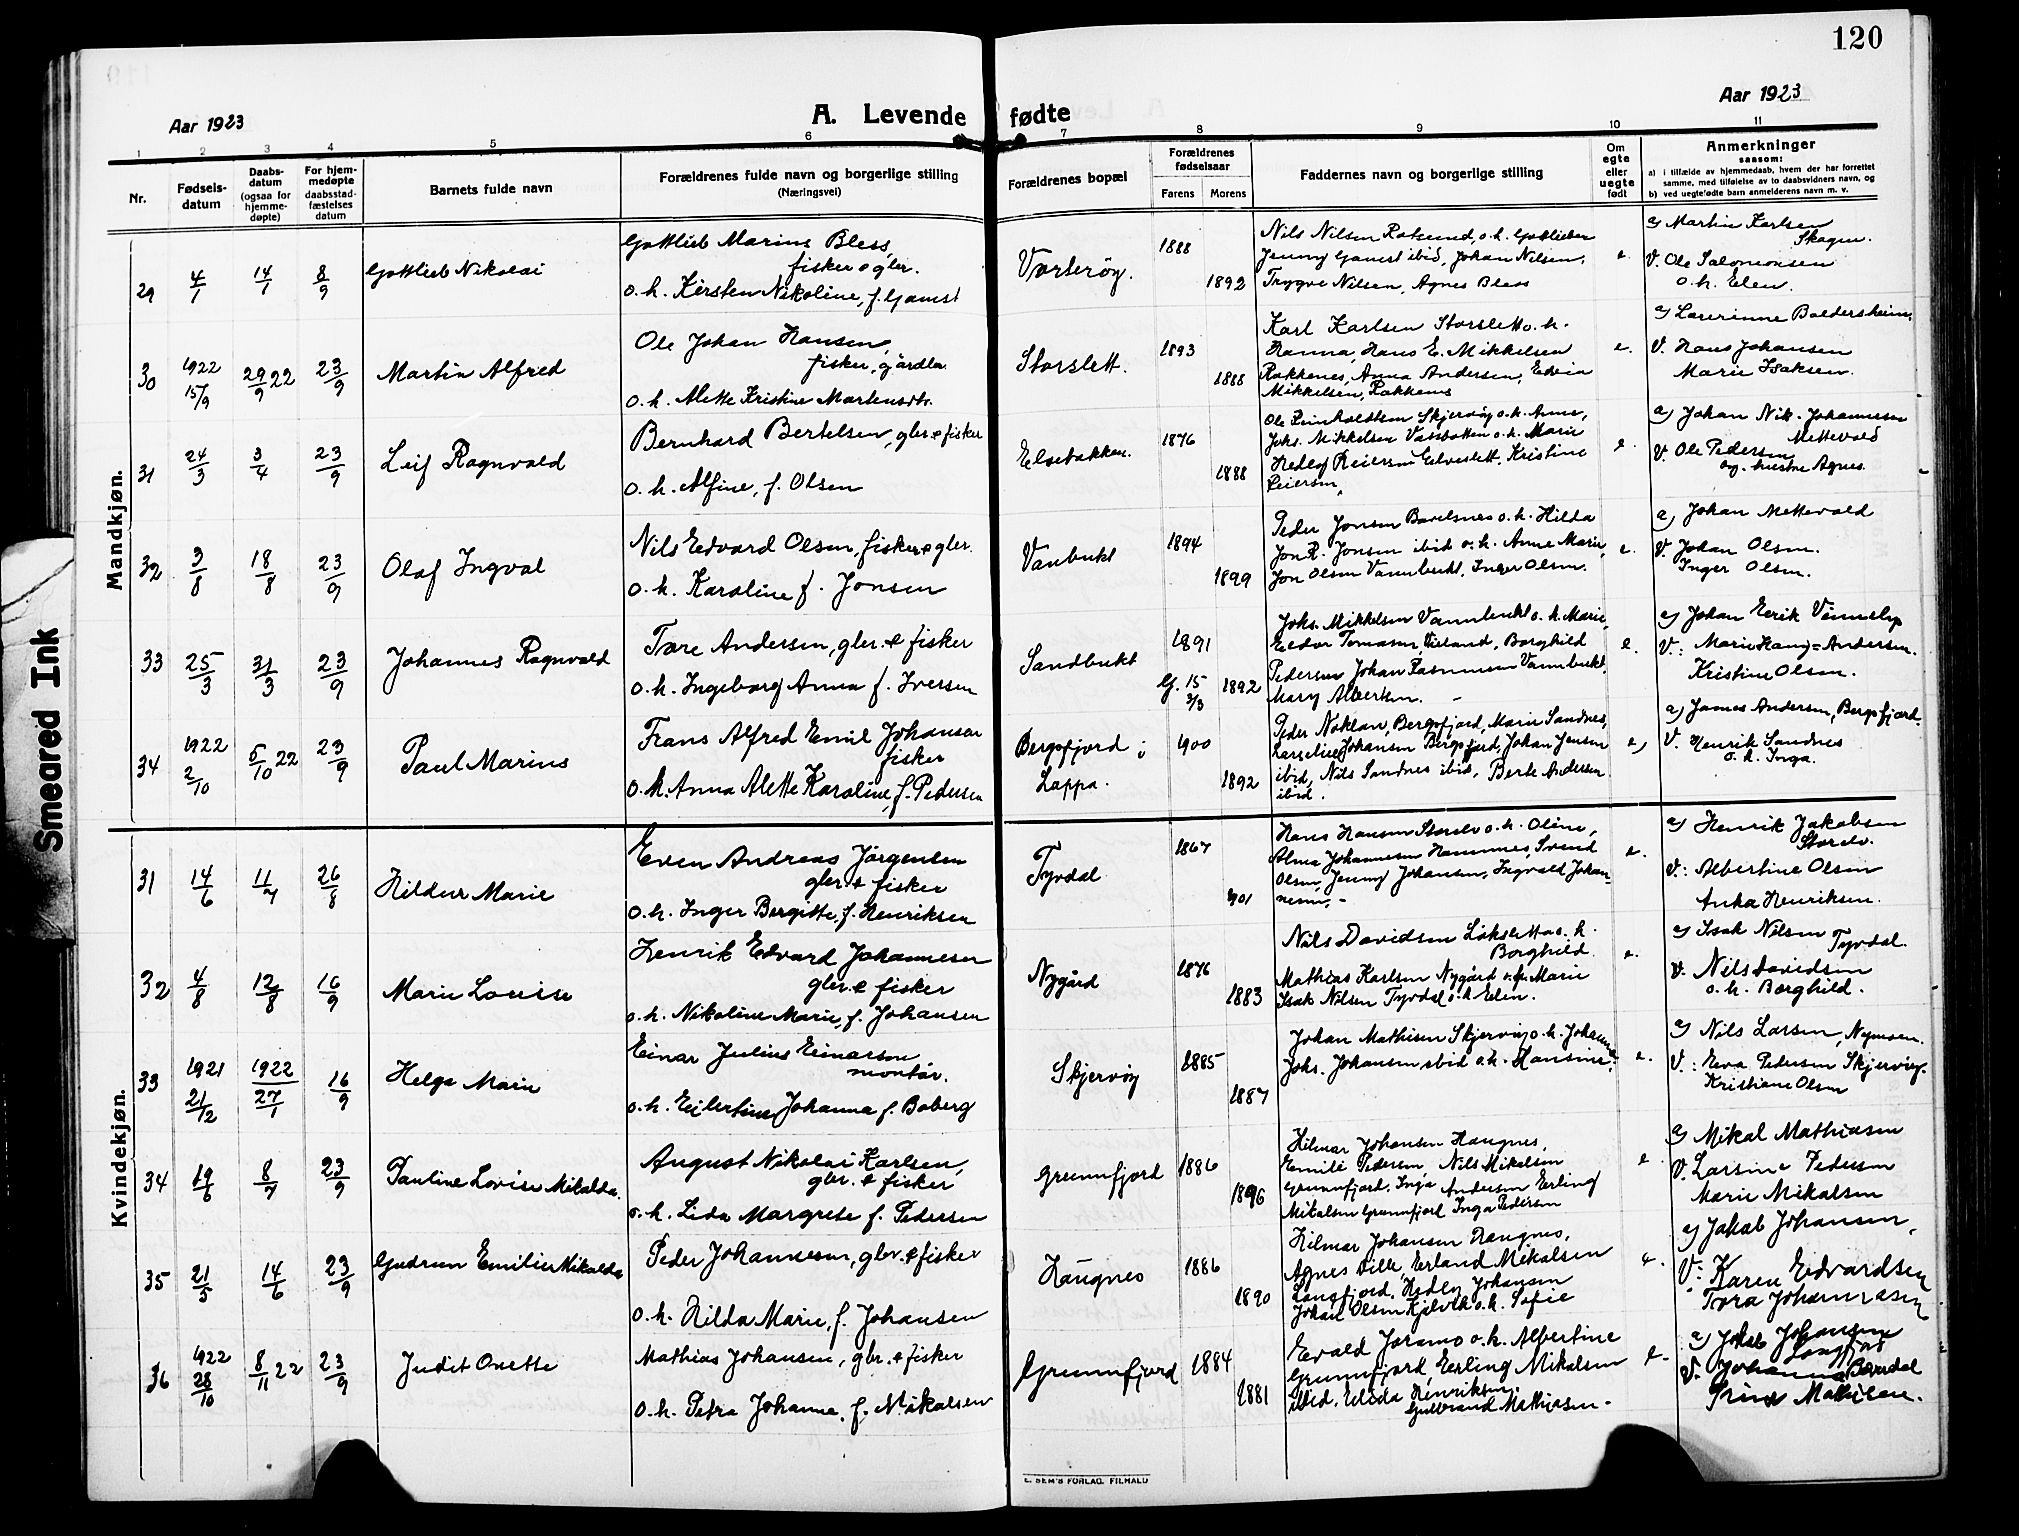 120
Aar 1923
A. Levende fødte
Aar 1923
1 2 3 4 5 6 7 8 9 10 11
Nr.
Fødsels-
datum
Daabs-
datum
(ogsaa for
hjemme-
døpte)
For hjem-
medøpte
daabsstad-
fæstelses
datum
Barnets fulde navn
Forældrenes fulde navn og borgerlige stilling
(Næringsvei)
Forældrenes bopæl
Forældrenes
fødselsaar
Farens Morens
Faddernes navn og borgerlige stilling
Om
egte
eller
uegte
født
Anmerkninger
saasom:
a) i tilfælde av hjemmedaab, hvem der har forrettet
samme, med tilføielse av to daabsvidners navn, og
b) ved uegtefødte barn anmelderens navn m. v.
Mandkjøn.
29 4/1 14/1 8/9 Gottlieb Nikolai
Gottlieb Marius Bless,
fisker & gbr.
o. h. Kirsten Nikoline, f. Gamst
Vorterøy. 1888 1892
Nils Nilsen Rotsund, o. h.
Jenny Gamst ibid, Johan Nilsen,
Trygve Nilsen, Agnes Bless
e.
a) Martin Karlsen
Skogen.
V. Ole Salomonsen
o. h. Elen.
30 1922 15/9 29/9 22 23/9 Martin Alfred
Ole Johan Hansen,
fisker, gårdbr.
o. h. Alette Kristine Mortensdtr.
Storslett. 1893 1888
Karl Karlsen Storslett o. h.
Hanna, Hans E. Mikkelsen
Rakkenes, Anna Andersen, Edvin
Mikkelsen, Rakkenes
e.
a) Lærerinne Boldersheim,
V. Hans Johansen
Marie Isaksen.
31 24/3 3/4 23/9 Leif Ragnvald
Bernhard Bertelsen, gbr. & fisker
o. h. Alfine, f. Olsen
Elvebakken. 1876 1888
Ole Reinholdtsen Skjervøy o. h. Anne,
Johs. Mikkelsen Vassbotten o. h. Marie
Hedlof Reiersen Elveslett, Kristine
Reiersen,
e.
a) Johan Nik. Johannesen
Mettevold
V. Ole Pedersen
og hustru Agnes.
32 3/8 18/8 23/9 Olaf Ingval
Nils Edvard Olsen, fisker & gbr.
o. h. Karoline f. Jonsen
Vanbukt 1894 1899
Peder Jonsen o. h. Hilda
Jon R. Jonsen ibid o. h. Anne Marie,
Jon Olsen Vannbukt, Inger Olsen.
e.
a) Johan Mettevold
V. Johan Olsen.
Inger Olsen.
33 25/3 31/3 23/9 Johannes Ragnvald
Tore Andersen, gbr. & fisker
o. h. Ingeborg Anna f. Iversen
Sandbukt 1891 1892
Johs. Mikkelsen Vannbukt o. h. Marie,
Tomasen, Borghild
Pedersen, Johan Rasmussen Vannbukt,
Mary Albertsen. -
e.
a) Johan Eerik Vinnelys
V.: Marie Hansj=Andersen.
Kristine Olsen.
34 1922 2/10 5/10 22 23/9 Paul Marius
Frans Alfred Emil Johansen
fisker
o. h. Anna Alette Karoline, f. Pedersen
Bergsfjord i
Loppa. 1900 1892
Peder Noklan, Bergsfjord, Marie Sandnes,
Johansen Bergsfjord, Johan Jensen
ibid, Nils Sandnes ibid, Berte Andersen
ibid.
e,
a) James Andersen, Bergsfjord.
V. Henrik Sandnes
o. h. Inga.
Kvindekjøn.
31 14/6 11/7 26/8 Hildur Marie
Even Andreas Jørgensen
gbr. & fisker
o. h. Inger Bergitte, f. Henriksen
Tyvdal 1867 1901
Hans Hansen Storelv o. h. Oline,
Alma Johannesen Hamnnes, Svend
Olsen, Jenny Johansen, Ingvald Johan-
nesen. -
e.
a) Henrik Jakobsen
Storelv.
V.: Albertine Olsen
Anna Henriksen.
32 4/8 12/8 16/9 Marie Lovise
Henrik Edvard Johannesen
gbr. & fisker
o. h. Nikoline Marie, f. Johansen
Nygård 1876 1883
Nils Davidsen Løkslett o. h.
Borghild
Mathias Karlsen Nygård o. h. Marie
Isak Nilsen Tyvdal o. h. Elen.
e.
a) Isak Nilsen
Tyvdal.
V. Nils Davidsen
o. h. Borghild.
33 1921 21/12 1922 27/1 16/9 Helga Marie
Einar Julius Einarson
montør.
o. h. Eilertine Johanna f. Boberg
Skjervøy 1885 1887
Johan Mathisen Skjervøy o. h. Johanna
Johs. Johansen ibid o. h. Hansine.
e.
a) Nils Larsen, Nymoen.
V.: Eva Pedersen Skjervøy.
Kristiane Olsen
34 19/6 8/7 23/9 Pauline Lovise Mikalda.
August Nikolai Karlsen,
gbr. & fisker
o. h. Lida Margrete f. Pedersen
Grunnfjord 1886 1896
Hilmar Johansen Haugnes,
Emilie Pedersen, Nils Mikalsen
Grunnfjord. Inga Andersen Erling
Mikalsen Grunnfjord Inga Pedersen
e
a) Mikal Mathiasen
V. Larsine Pedersen
Marie Mikalsen
35 21/5 14/6 23/9 Gudrun Emilie Mikalda
Peder Johannesen, gbr. & fisker
o. h. Hilda Marie, f. Johansen
Haugnes 1886 1890
Hilmar Johansen Haugnes,
Agnes Erland Mikalsen
Langfjord, Hedley Johansen
Johan Olsen o. h. Sofie
e.
a) Jakob Johansen,
V: Karen Edvardsen
Tora Johannesen
36 1922 28/10 8/11 22 23/9 Judit Onette
Mathias Johansen, gbr. & fisker
o. h. Petra Johanne, f. Mikalsen
Grunnfjord 1884 1881
Evald Jøramo o. h. Albertine
Grunnfjord, Erling Mikalsen
ibid, Elida Henriksen,
Gulbrand Mathiasen -
e-
a) Jakob Johansen
Langfjord
V. Johanna
Mathisen.
E. SEM'S FORLAG, FILHALD
Smeared Ink